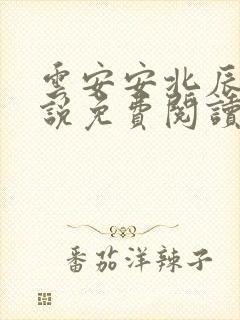 雲安安北辰
説免費閱讀
番茄洋辣子